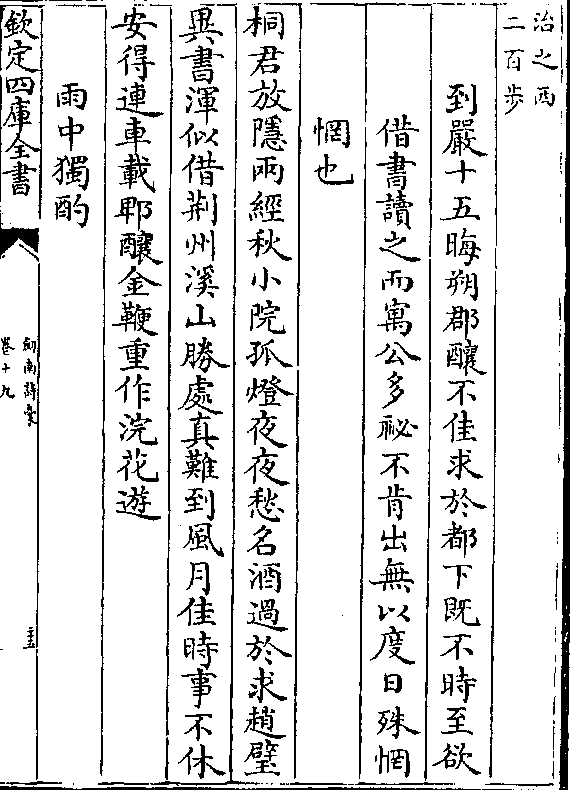 治之西
二百歩
到嚴十五晦朔郡釀不佳求於都下既不時至欲
借書讀之而寓公多祕不肯出無以度日殊惘
惘也
桐君放隱兩經秋小院孤燈夜夜愁名酒過於求趙璧
異書渾似借荆州溪山勝處真難到風月佳時事不休
安得連車載郫釀金鞭重作浣花遊
雨中獨酌
欽定四庫全書
劍南詩藁
卷十九